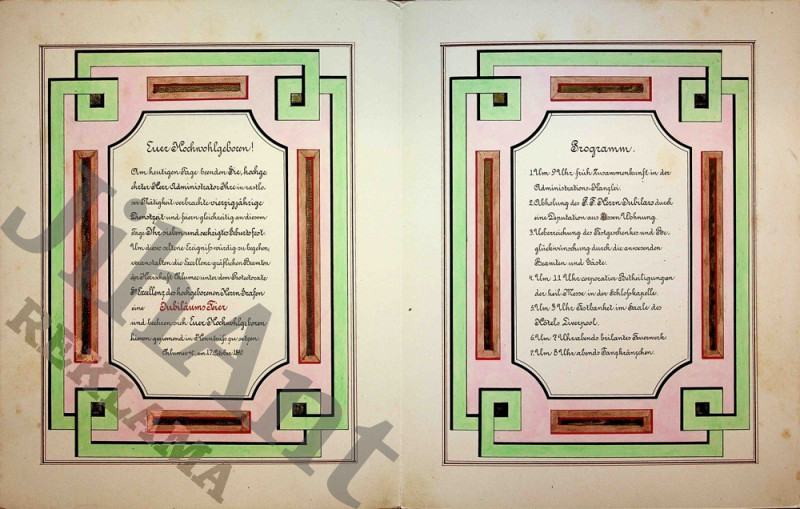 Euer Hochwohlgeboren!
Am heutigen Tage beenden Sie, hochge
ehrter Herr Administrator Ihre in rastlo-
ser Tätigkeit verbrachte vierzigjährige
Dienstzeit und feiern gleichzeitig an diesem
Tage Ihr siebenundsechzigstes Geburtsfest.
Um diese seltene Ereigniß würdig zu begehen,
veranstalten die Excellenz gräflichen Beamten
der Herrschaft Chlumec unter dem Protectorate
Sr Excellenz des hochgeborenen Herrn Grafen
eine Jubiläums Feier
und beehren sich Euer Hochwohlgeboren
hievon geziemend in Kenntniss zu setzen.
Chlumec am 17. October 1890
Programm.
1. Um 9 Uhr früh Zusammenkunft in der
Administrations-Kanzlei.
2. Abholung des Herrn Jubilars durch
eine Deputation aus Wohnung.
3. Ueberreichung des Festgeschenkes und Be-
glückwünschung durch die anwesenden
Beamten und Gäste.
4. Um 11 Uhr corporative Betheiligungen
der heil. Messe in der Schloßkapelle.
5. Um 3 Uhr Festbanket im Saale des
Hôtels Liverpool.
6. Um 7 Uhr abends brilantes Feuerwerk
7. Um 8 Uhr abends Tanzkränzchen.
JiriAnt
REKLAMA